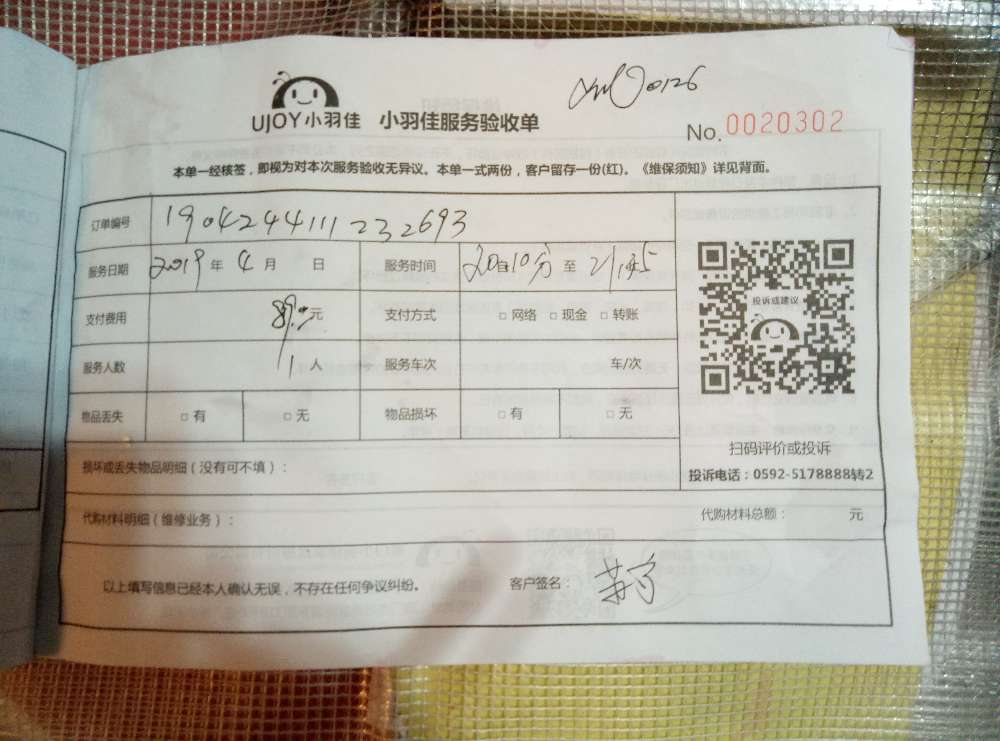 UJOY小羽佳 小羽佳服务验收单
No. 0020302
本单一经核签，即视为对本次服务验收无异议。本单一式两份，客户留存一份(红)。《维保须知》详见背面。
订单编号 1904244111232693
服务日期 2019年 4月 日 服务时间 20时10分 至 21时45
投诉或建议
支付费用 89.0元 支付方式 □网络 □现金 □转账
服务人数 1人 服务车次 车/次
物品丢失 □有 □无 物品损坏 □有 □无
扫码评价或投诉
投诉电话：0592-5178888转2
损坏或丢失物品明细（没有可不填）：
代购材料明细（维修业务）： 代购材料总额： 元
以上填写信息已经本人确认无误，不存在任何争议纠纷。 客户签名：